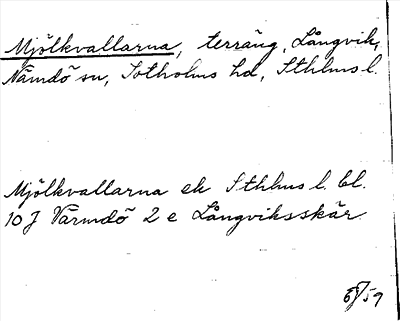 Mjölkvallarna, terräng, Långvik,
Nämdö sn, Sotholms hd, Sthlms l.
Mjölkvallarna ek Sthlms l. bl.
10 J Värmdö 2 e Långviksskär